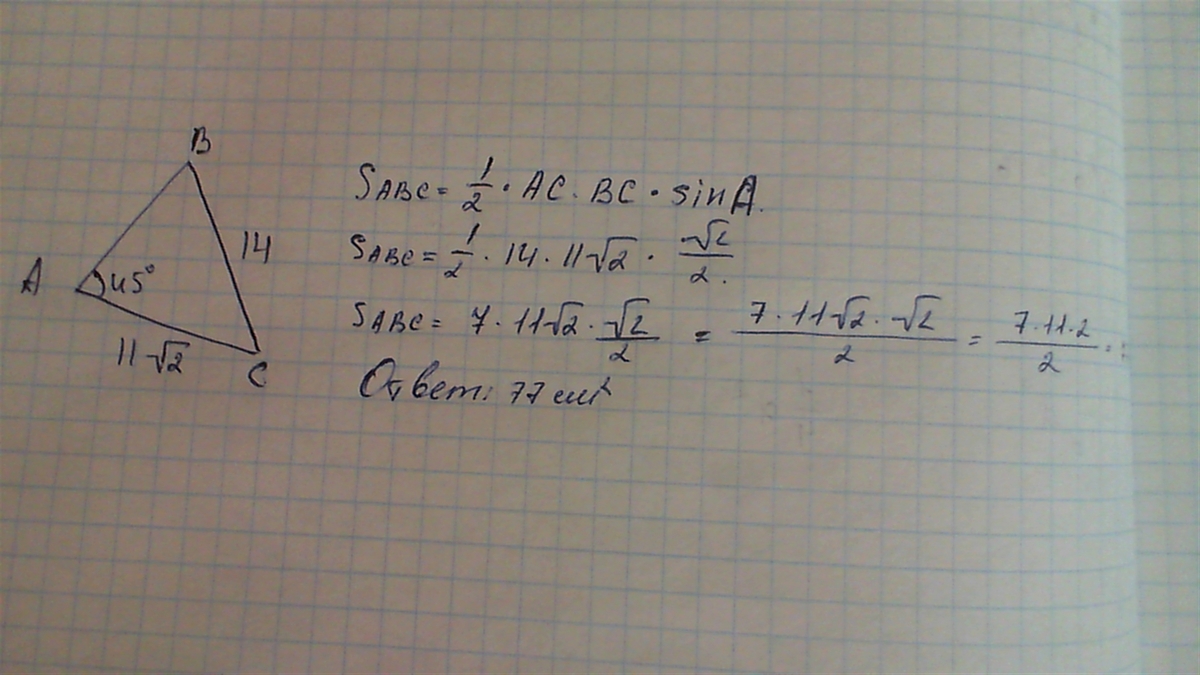 B
A
45°
14
11√2
C
S ABC = 1/2 · AC · BC · sin A.
S ABC = 1/2 · 14 · 11√2 · √2/2.
S ABC = 7 · 11√2 · √2/2 = 7 · 11√2 · √2/2 = 7 · 11 · 2/2 =
Ответ: 77 см²